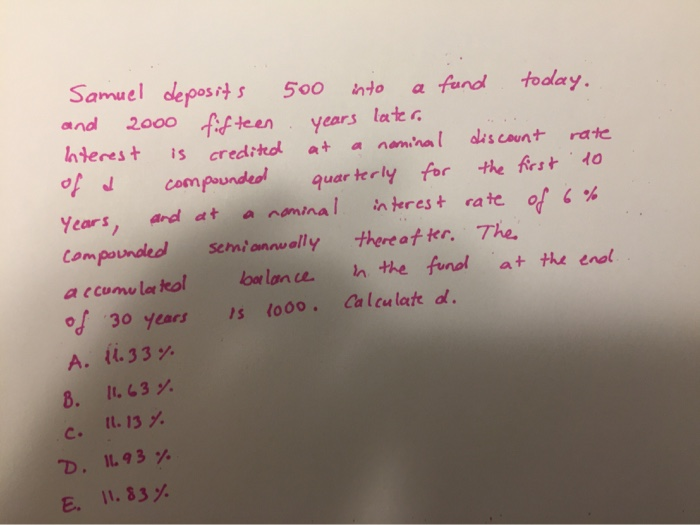 Samuel deposits 500 into a fund today.
and 2000 fifteen years later.
Interest is credited at a nominal discount rate
of d compounded quarterly for the first 10
years, and at a nominal interest rate of 6%
compounded semiannually thereafter. The
accumulated balance in the fund at the end
of 30 years is 1000. Calculate d.
A. 11.33%.
B. 11.63%.
C. 11.13%.
D. 11.93%.
E. 11.83%.